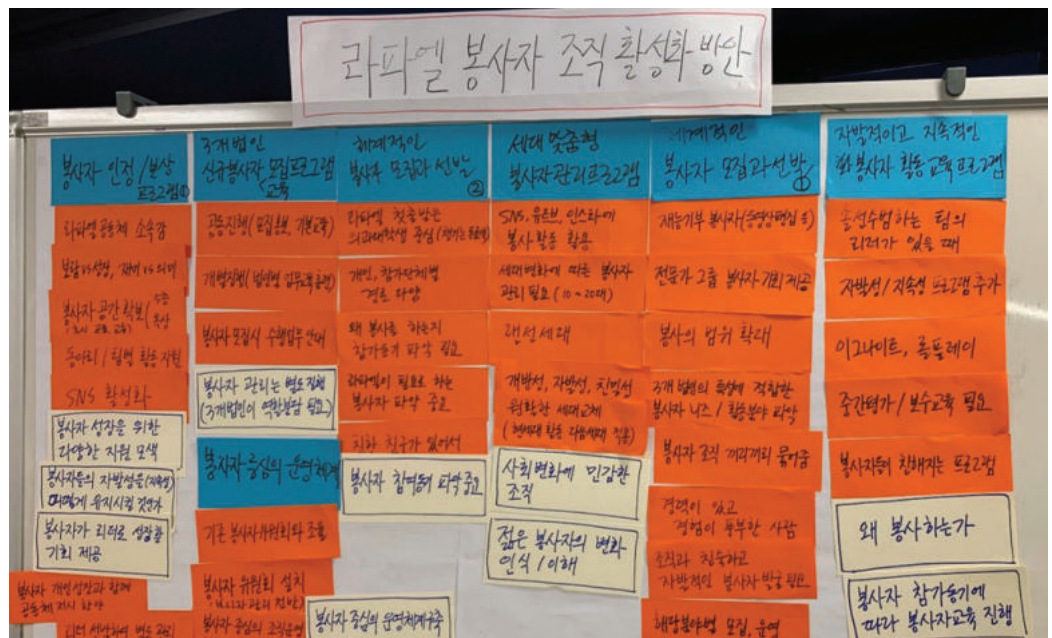 라파엘 봉사자 조직 활성화 방안
봉사자 인정/보상
프로그램①
라파엘공동체 소속감
보람 vs 성장, 재미 vs 의미
봉사자 공간 확보
동아리/팀별 활동 지원
SNS 활성화
봉사자 성장을 위한
다양한 지원 모색
봉사자들의 자발성을
어떻게 유지시킬 것인가
봉사자가 리더로 성장할
기회 제공
봉사자 개인성장과 함께
3개 법인
신규봉사자 모집프로그램
교육
공동진행(모집홍보, 기본교육)
개별진행(법인별 업무교육
봉사자 모집시 수행업무 안내
봉사자 관리는 별도 진행
(3개법인이 역할분담 필요)
봉사자 중심의 운영체계
기존 봉사자위원회와 조율
봉사자 위원회 설치
봉사자 중심의 조직운영
체계적인
봉사자 모집과 선발
②
라파엘 첫출발은
의과대학생 중심
개인, 참가단체별
경로 다양
왜 봉사를 하는지
참가동기 파악 필요
라파엘이 필요로 하는
봉사자 파악 중요
친한 친구가 있어서
봉사자 참여동기 파악 중요
봉사자 중심의 운영체계구축
세대 맞춤형
봉사자관리프로그램
SNS, 유튜브, 인스타에
봉사활동 활용
세대변화에 따른 봉사자
관리 필요 (10~20대)
랜선세대
개방성, 자발성, 친밀성
원활한 세대교체
사회변화에 민감한
조직
젊은 봉사자의 변화
인식/이해
체계적인
봉사자 모집과 선발
①
재능기부 봉사자(동영상편집 등)
전문가 그룹 봉사자 기회 제공
봉사의 범위 확대
3개 법인의 특성에 적합한
봉사자 니즈/활동분야 파악
봉사자 조직 끼리끼리 묶어줌
경력이 있고
경험이 풍부한 사람
조직과 친숙하고
자발적인 봉사자 발굴 필요
해당분야별 모집, 운영
자발적이고 지속적인
봉사자 활동 교육프로그램
솔선수범하는 팀의
리더가 있을 때
자발성/지속성 프로그램 추가
이그나이트, 롤플레이
중간평가/보수교육 필요
봉사자들이 친해지는 프로그램
왜 봉사하는가
봉사자 참가동기에
따라 봉사자교육 진행